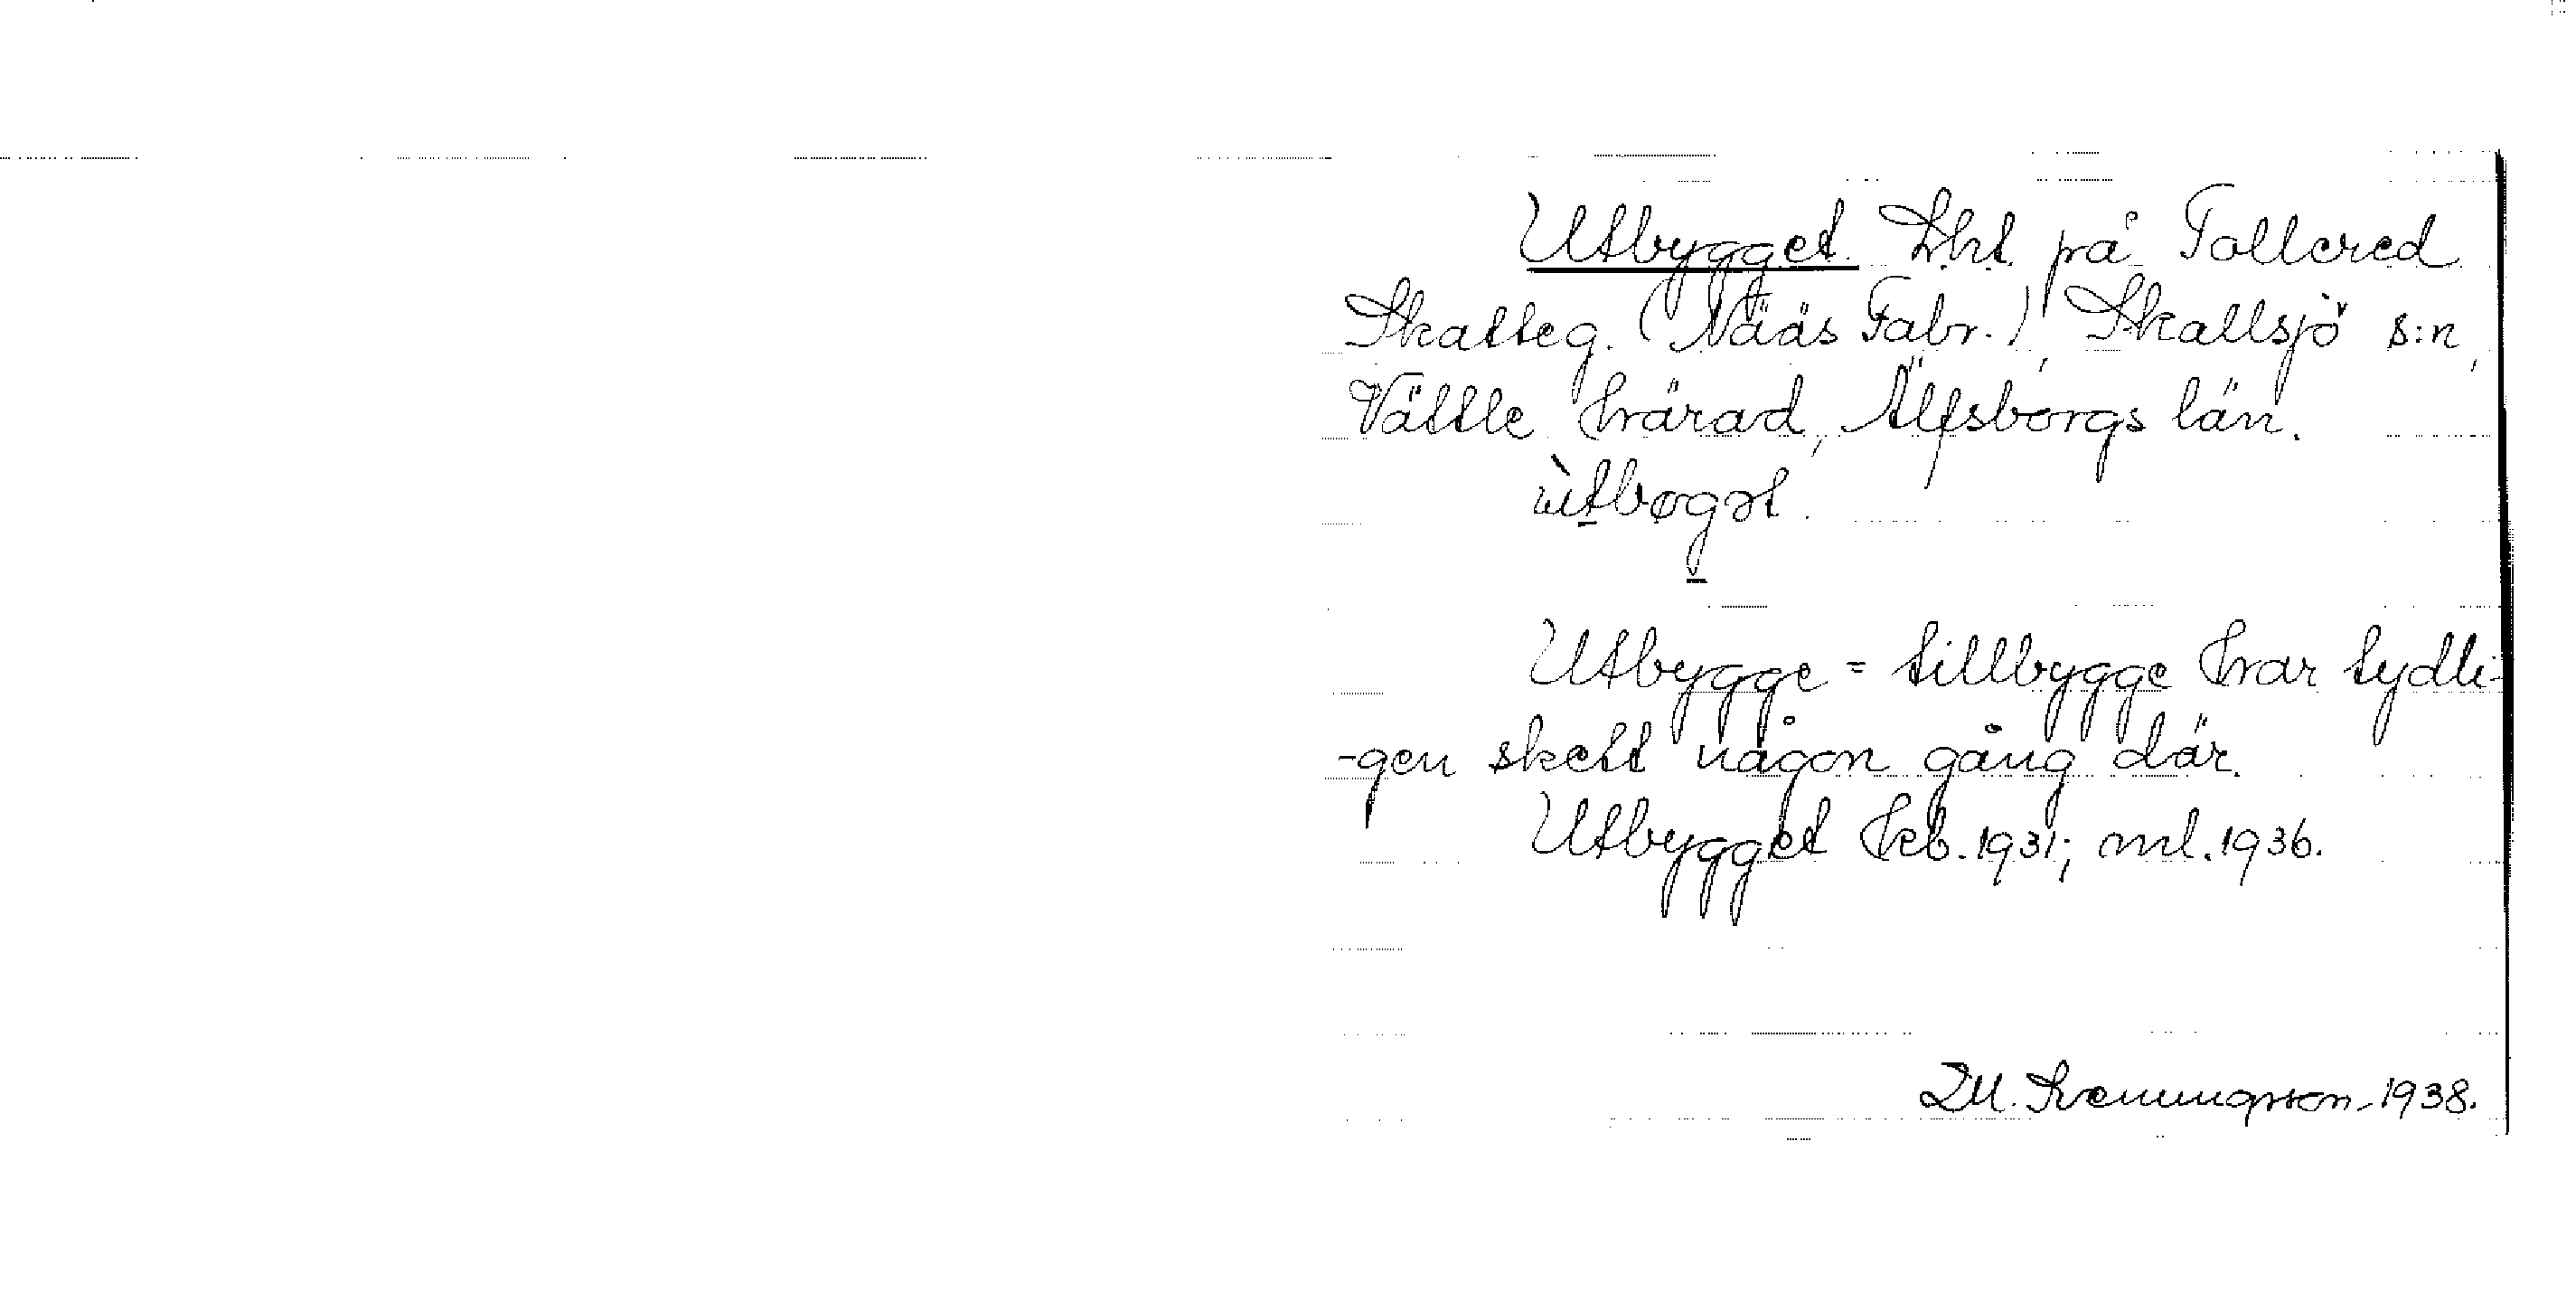 Utbygget. Lht på Tollered
Skatteg. (Nääs Fabr.), Skallsjö s:n,
Vättle härad, Älfsborgs län.
ùtbøgət.
Utbygge = tillbygge har tydli-
-gen skett någon gång där.
Utbygget hcb. 1931; ml. 1936.
1938.